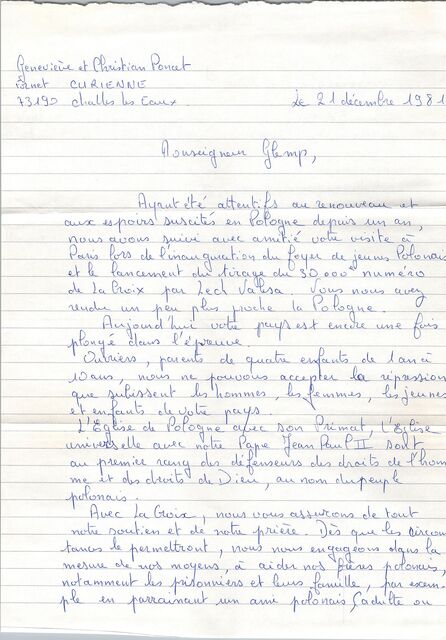 Geneviève et Christian Poncet
CURIENNE
73190 Challes les Eaux. Le 21 décembre 1981
Monseigneur Glemp,
Ayant été attentifs au renouveau et
aux espoirs suscités en Pologne depuis un an,
nous avons suivi avec amitié votre visite à
Paris lors de l'inauguration du foyer de jeunes Polonais
et le lancement du tirage du 30 000e numéro
de La Croix par Lech Valesa. Vous nous avez
rendu un peu plus proche la Pologne.
Aujourd'hui votre pays est encore une fois
plongé dans l'épreuve.
Ouvriers, parents de quatre enfants de 1 an à
10 ans, nous ne pouvons accepter la répression
que subissent les hommes, les femmes, les jeunes
et enfants de votre pays.
L'Eglise de Pologne avec son Primat, l'Eglise
universelle avec notre Pape Jean Paul II sont
au premier rang des défenseurs des droits de l'hom
me et des droits de Dieu, au nom du peuple
polonais.
Avec La Croix, nous vous assurons de tout
notre soutien et de notre prière. Dès que les circons
tances le permettront, nous nous engageons dans la
mesure de nos moyens, à aider nos frères polonais,
notamment les prisonniers et leurs famille, par exem-
ple en parrainant un ami polonais (adulte ou